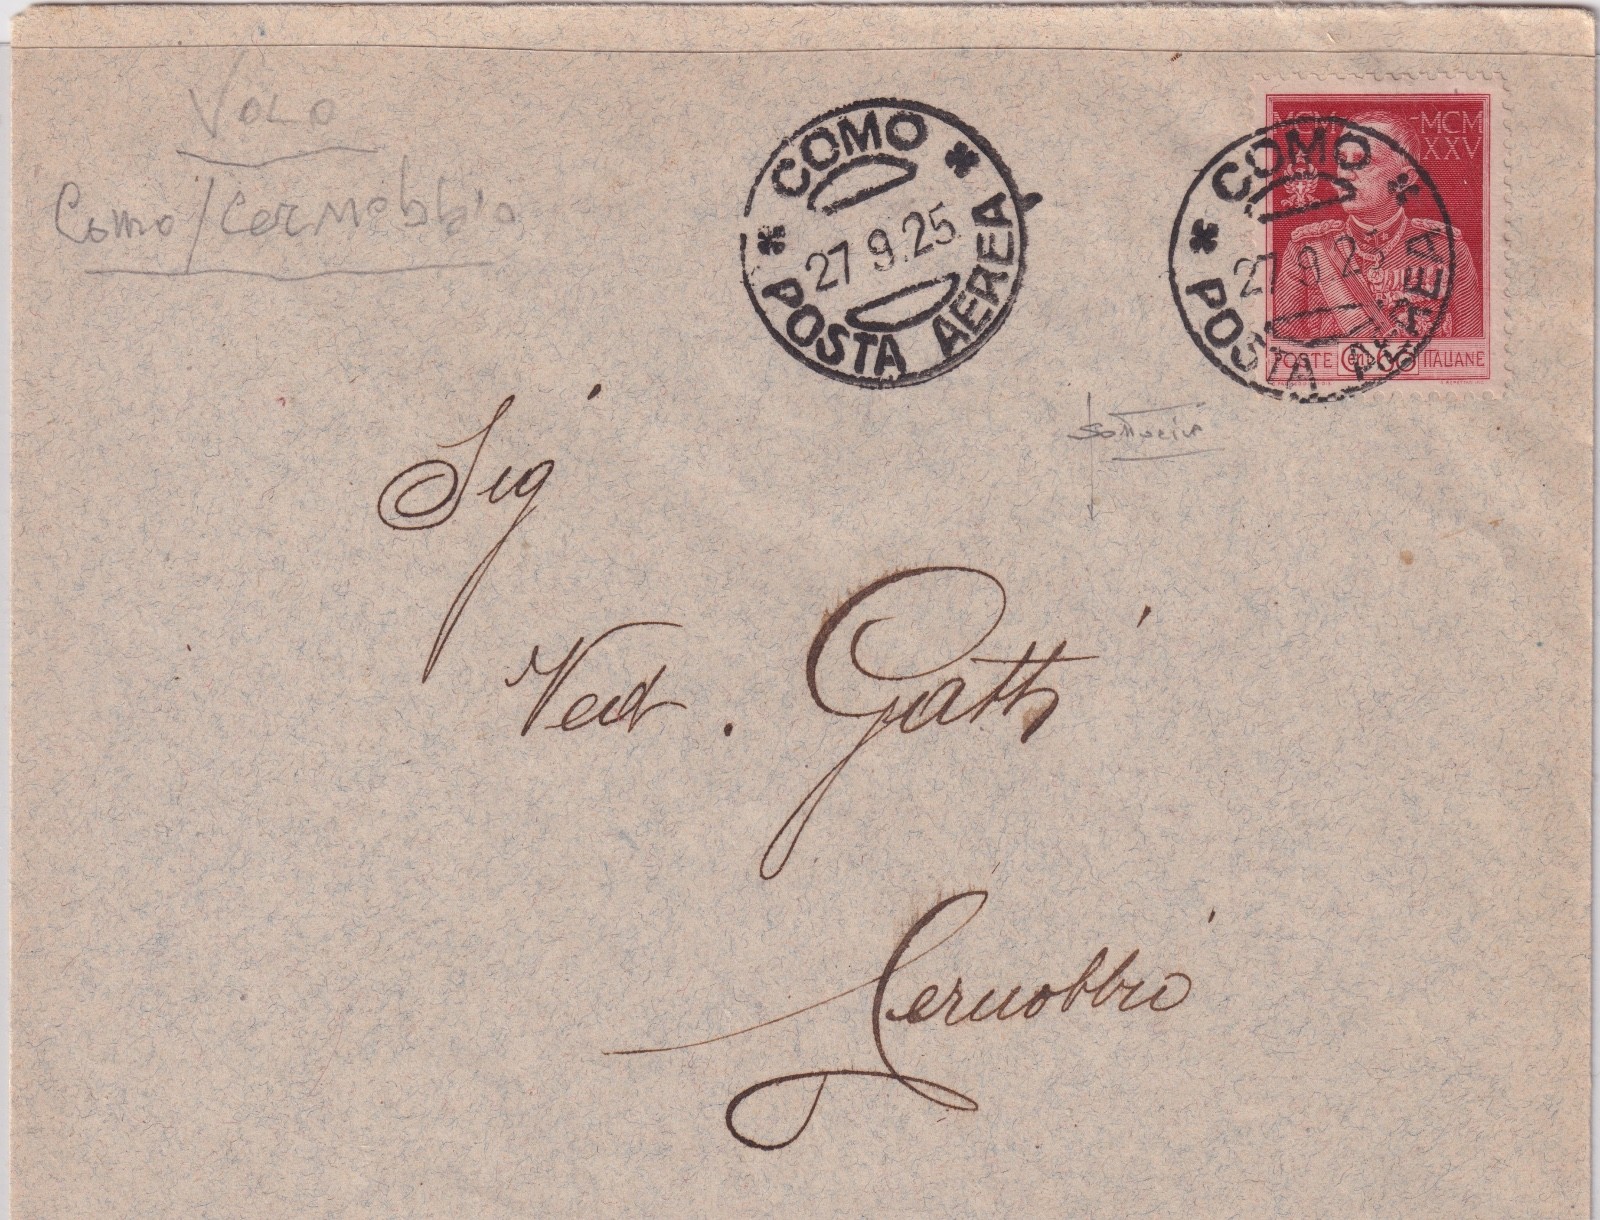 Volo
Como/Cernobbio
* COMO *
27 9.25
POSTA AEREA
MCM MCM
XXV
* COMO *
27 9 25
POSTA AEREA
POSTE Cent. 60 ITALIANE
Sig
Ved. Gatti
Cernobbio